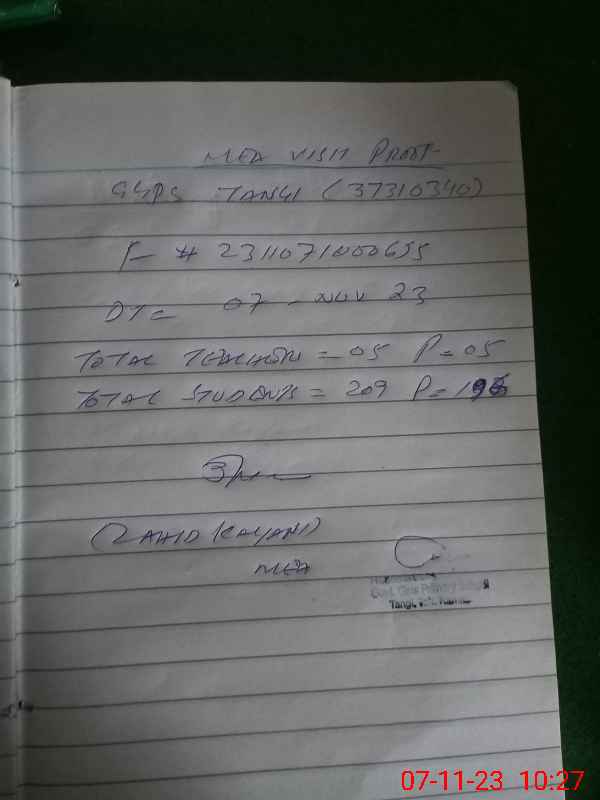 MEA VISIT PROOF
GGPS TANGI (37310340)
F- # 2311071000655
DTE 07 - NOV 23
TOTAL TEACHERS = 05 P = 05
TOTAL STUDENTS = 209 P = 196
(ZAHID KAYANI)
MEA
Govt. Girls Primary
Tangi
07-11-23 10:27